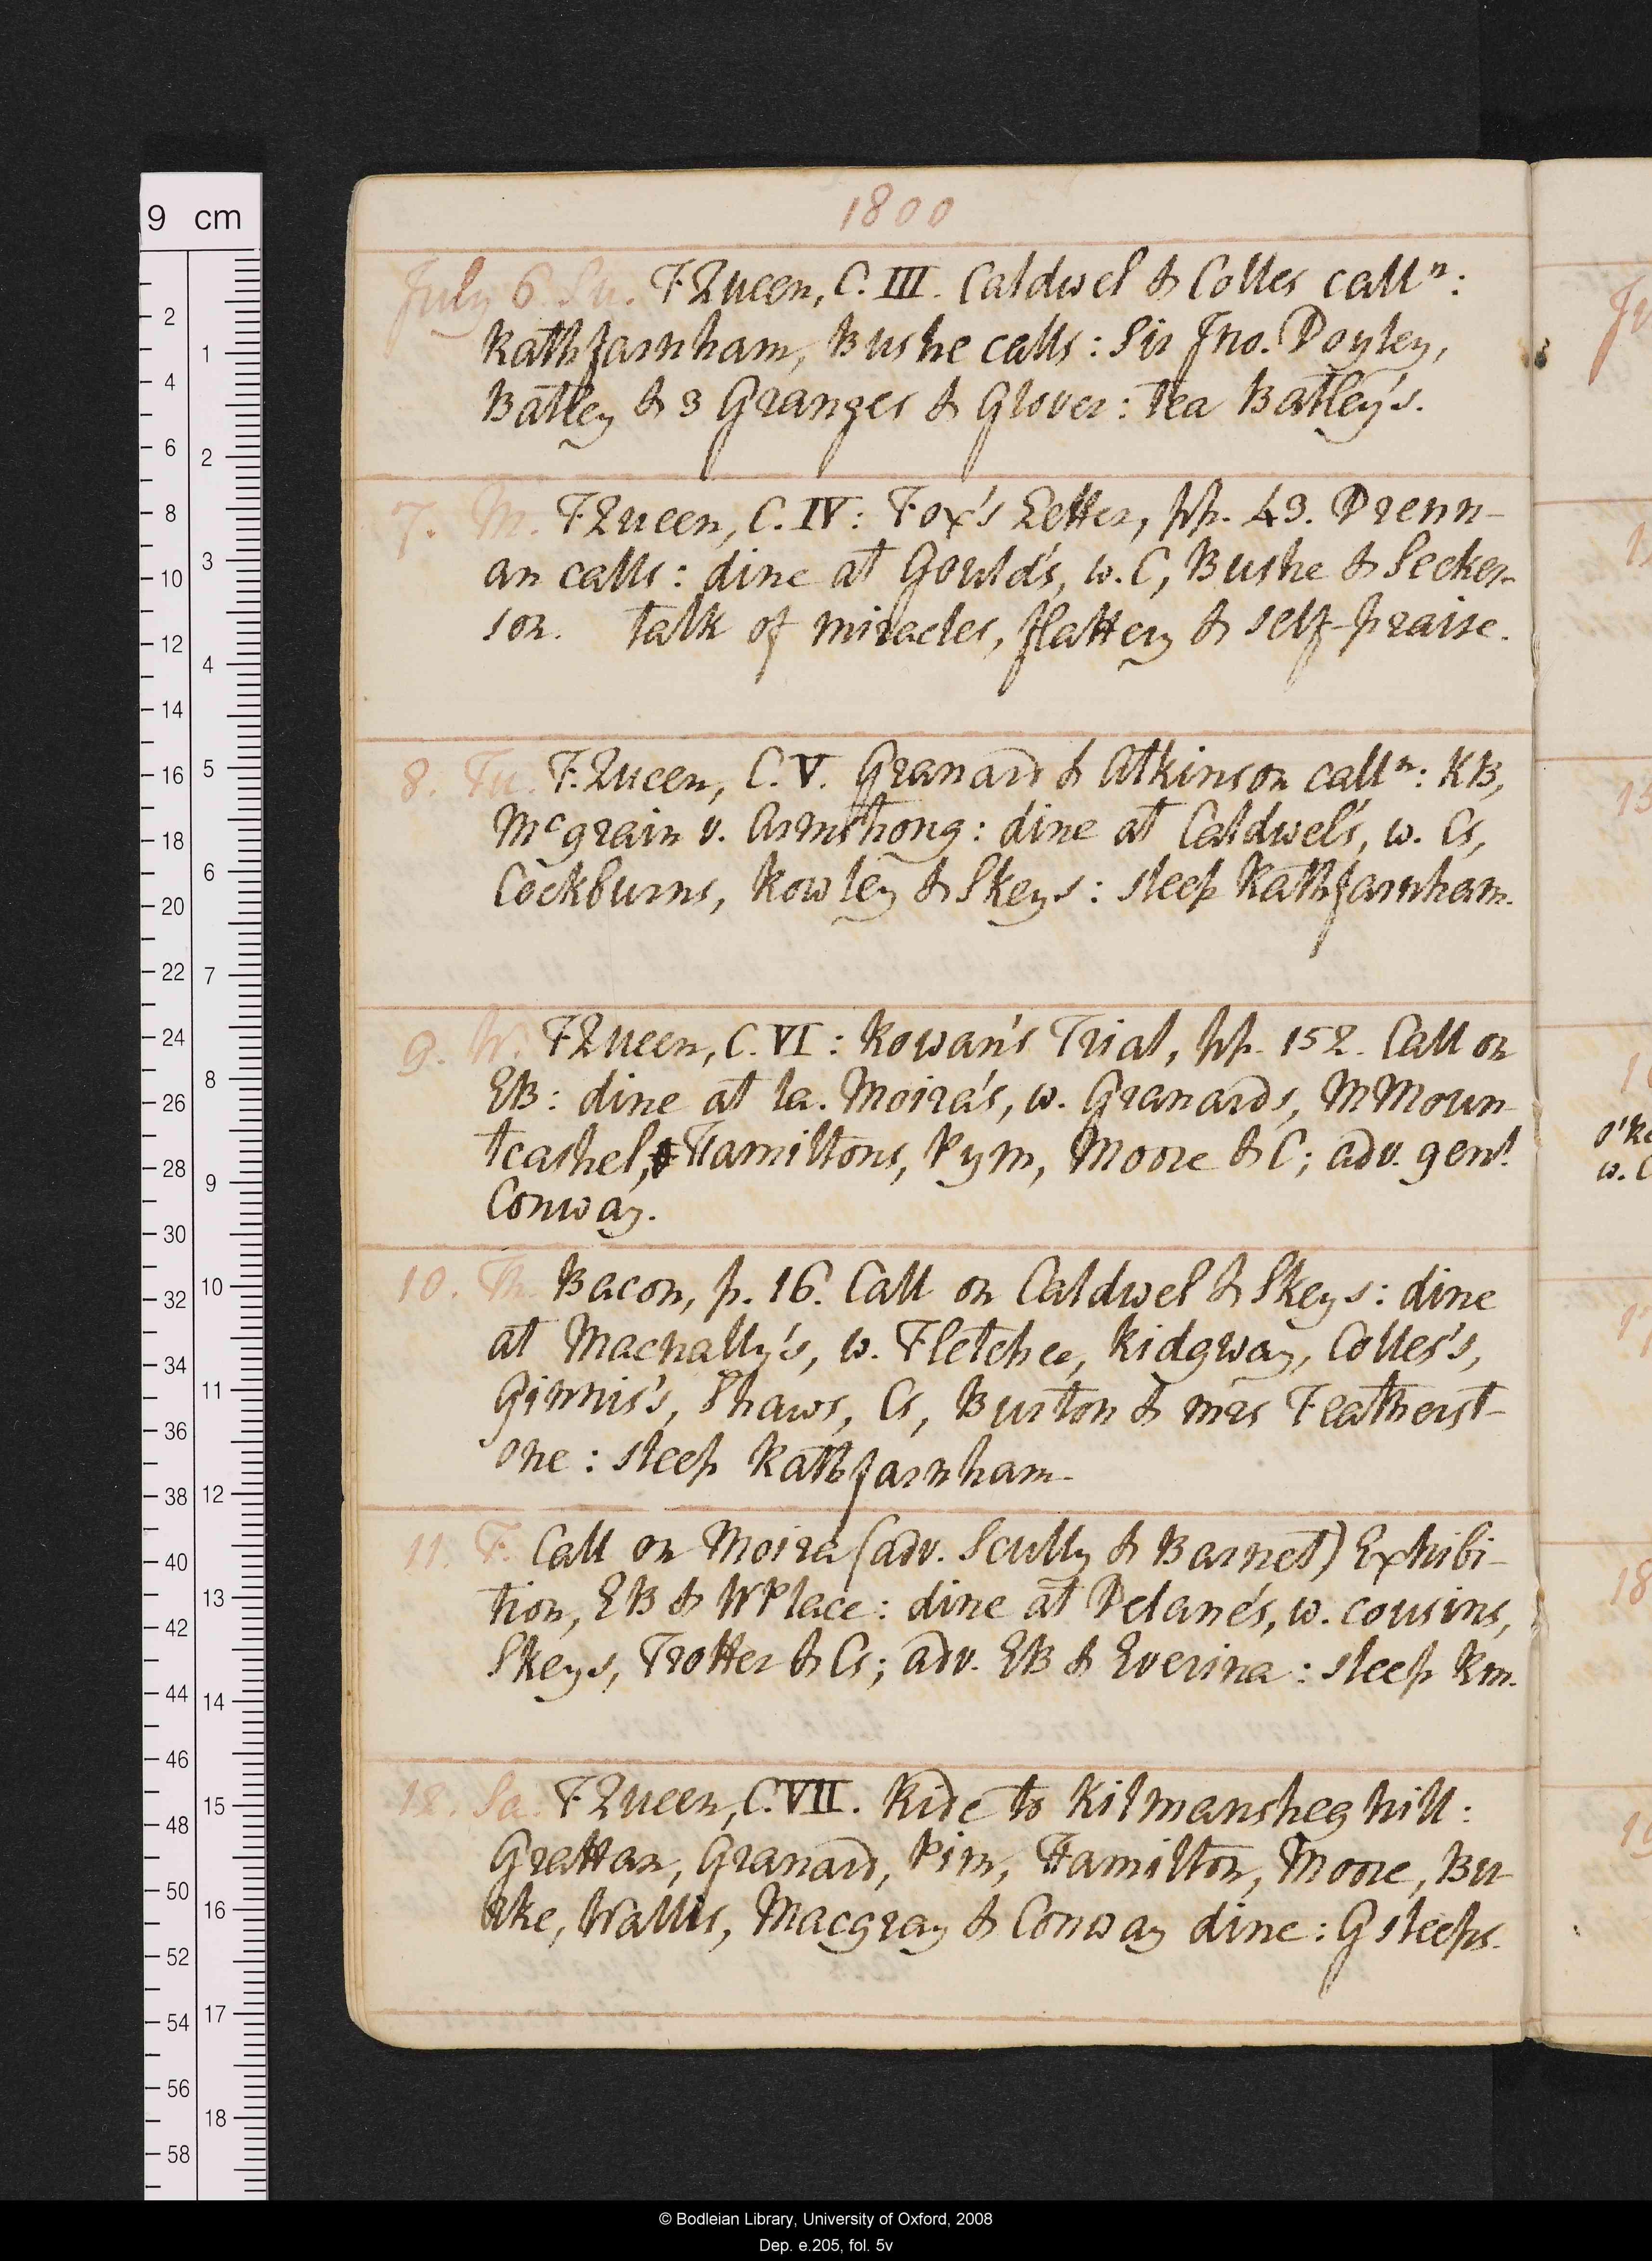 1800
July 6. Su. F.Queen, C. III. Caldwel & Colles calln:
Rathfarnham, Bushe calls: Sir Jno. Doyley,
Batley & 3 Granges & Glover: tea Batley's.
7. M. F.Queen, C. IV: Fox's Letter, pp. 43. Drenn-
an calls: dine at Gould's, w. C, Bushe & Secker-
son. Talk of miracles, flattery & self-praise.
8. Tu. F.Queen, C. V. Granard & Atkinson calln: KB,
Mcgrain v. Armstrong: dine at Caldwel's, w. Cs,
Cockburns, Rowley & Skeys: sleep Rathfarnham.
9. W. F.Queen, C. VI: Rowan's Trial, pp. 152. Call on
EB: dine at la. Moira's, w. Granards, M Moun-
tcashel, Hamiltons, Pym, Moore & C; adv. genl.
Conway.
10. Th. Bacon, p. 16. Call on Caldwel & Skeys: dine
at Macnally's, w. Fletcher, Ridgway, Colles's,
Ginnis's, Shaws, Cs, Burton & mrs Featherst-
one: sleep Rathfarnham.
11. F. Call on Moira (adv. Scully & Barnet) Exhibi-
tion, EB & WPlace: dine at Delane's, w. cousins,
Skeys, Trotter & Cs; adv. EB & Everina: sleep Rm.
12. Sa. F.Queen, C. VII. Ride to Kilmansheg hill:
Grattan, Granard, Pim, Hamilton, Moore, Bu-
rke, Wallis, Macgray & Conway dine: G sleeps.
9 cm
2
4
6
8
10
12
14
16
18
20
22
24
26
28
30
32
34
36
38
40
42
44
46
48
50
52
54
56
58
1
2
3
4
5
6
7
8
9
10
11
12
13
14
15
16
17
18
© Bodleian Library, University of Oxford, 2008
Dep. e.205, fol. 5v